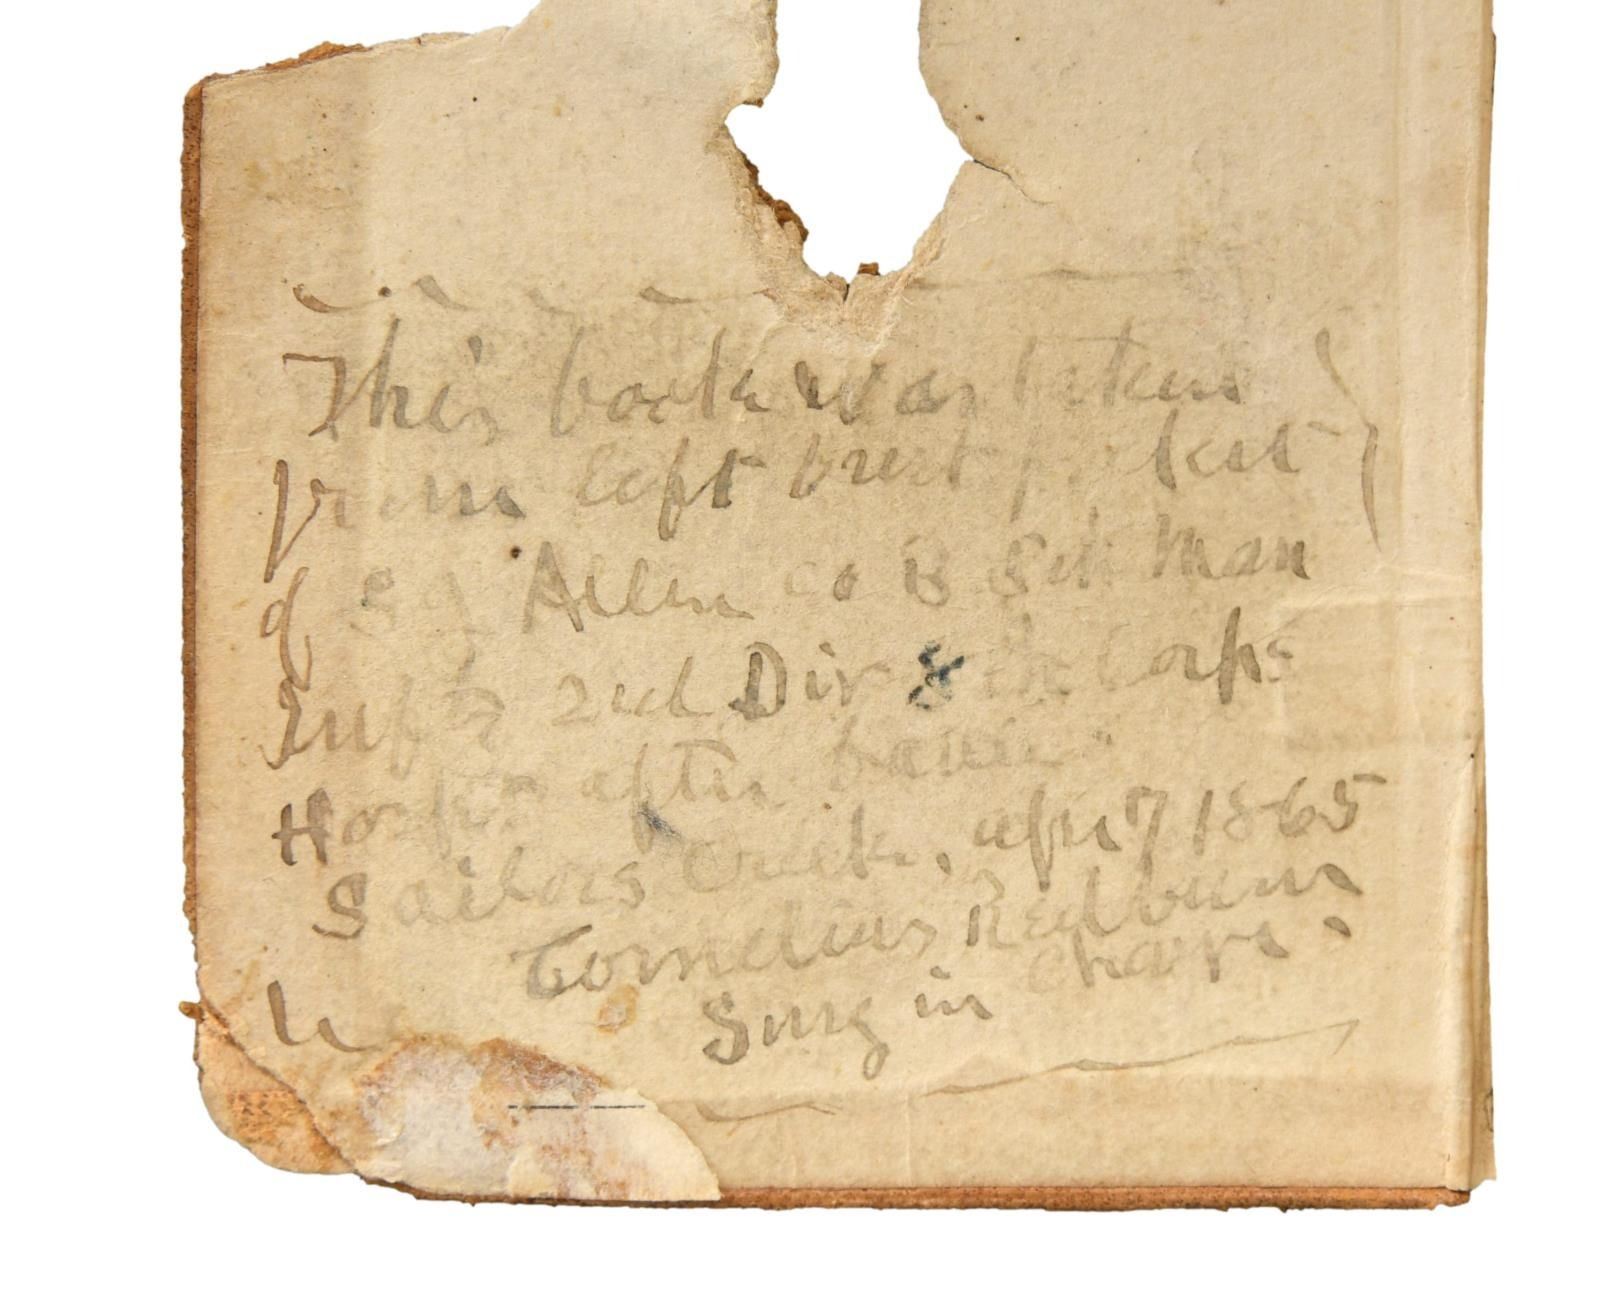 This book was taken
from left brest pocket
of Sg Allen co B 5th Man
Infty 2nd Div 6th Corps
Hospt after battle
Sailors Creek, apr 7 1865
Cornelius Redburn
Surg in Charg